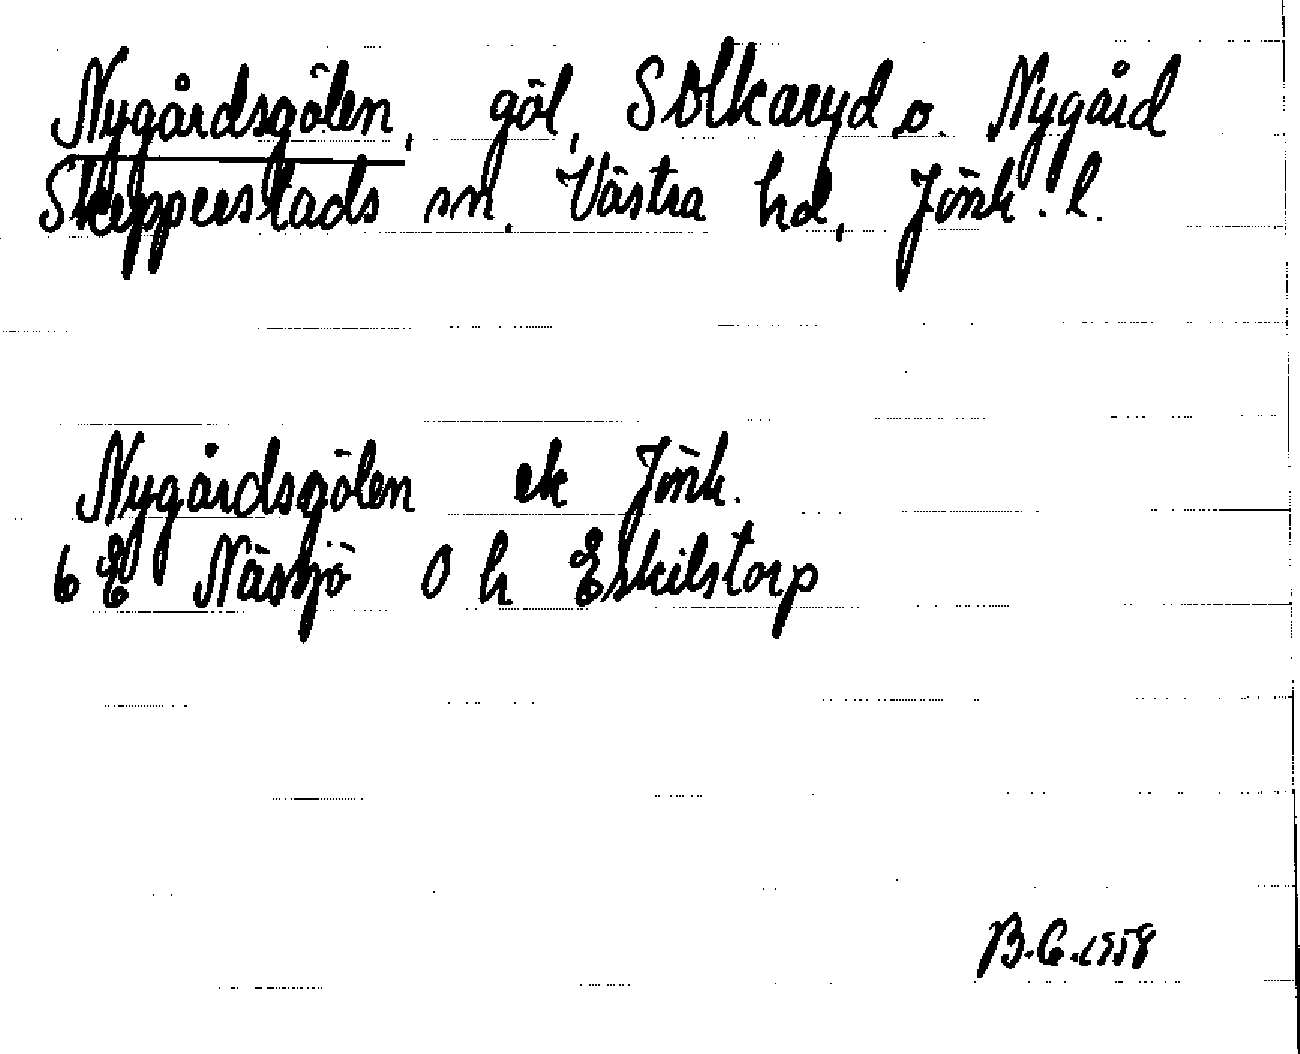 Nygårdsgölen, göl, Solkaryd o. Nygård
Skepperstads sn. Västra hd, Jönk. l.
Nygårdsgölen ek Jönk.
6 E Nässjö O h Eskilstorp
B.G. 1958